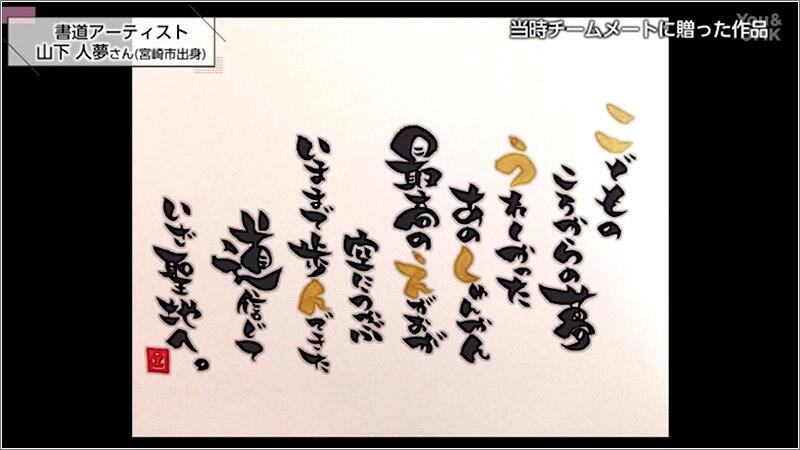 書道アーティスト
山下 人夢さん(宮崎市出身)
当時チームメートに贈った作品
You&
こどもの
ころからの夢
うれしかった
あのしゅんかん
最高のえがおが
空につがい
いままで歩んできた
道信じて
いざ聖地へ。